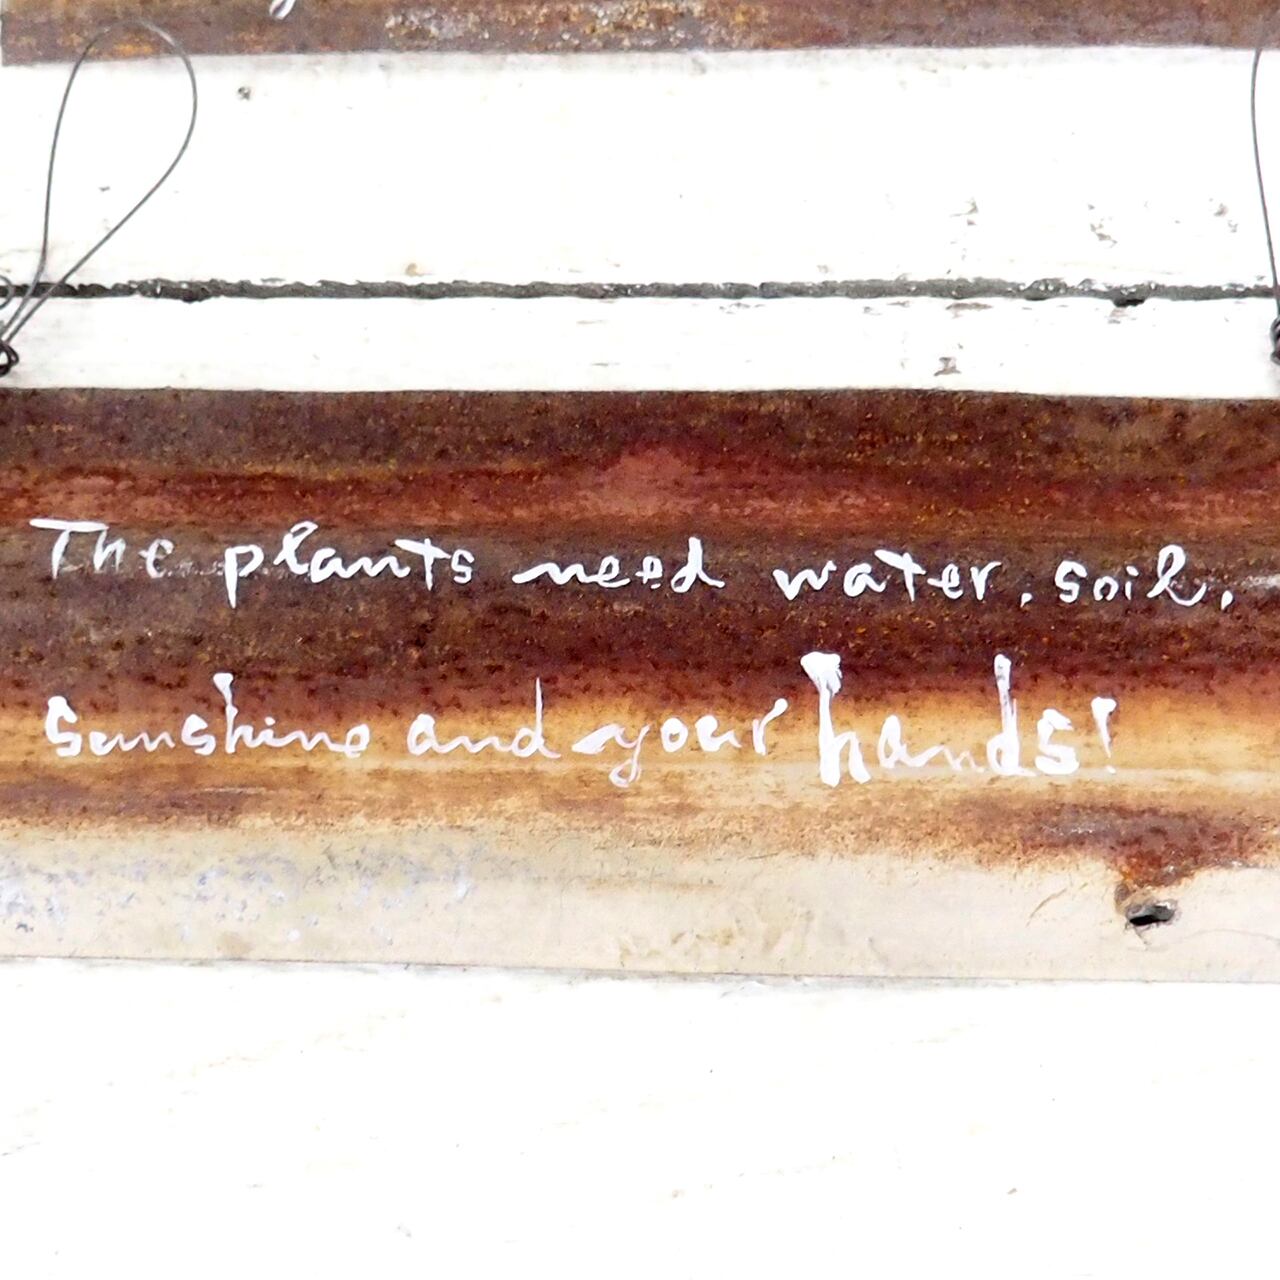 The plants need water, soil,
sunshine and your hands!